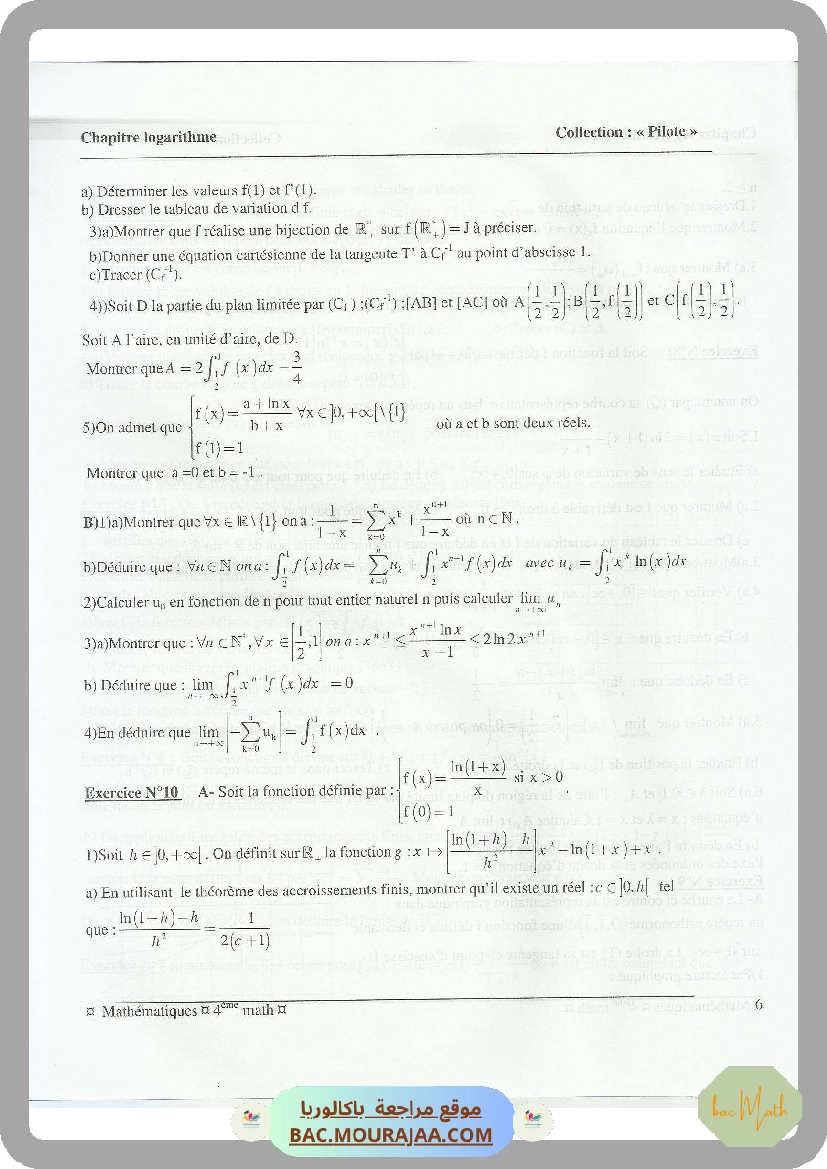 Chapitre logarithme
Collection : « Pilote »
a) Déterminer les valeurs f(1) et f'(1).
b) Dresser le tableau de variation d f.
3)a)Montrer que f réalise une bijection de ℝ*₊ sur f(ℝ*₊) = J à préciser.
b)Donner une équation cartésienne de la tangente T' à C_f⁻¹ au point d'abscisse 1.
c)Tracer (C_f⁻¹).
4))Soit D la partie du plan limitée par (C_f) ;(C_f⁻¹) ;[AB] et [AC] où A(1/2, 1/2);B(1/2, f(1/2)) et C(f(1/2), 1/2).
Soit A l'aire, en unité d'aire, de D.
Montrer que A = 2∫_{1/2}^{1} f (x)dx − 3/4
5)On admet que { f(x) = (a + ln x)/(b + x) ∀x ∈ ]0, +∞[\{1} ; f(1) = 1 où a et b sont deux réels.
Montrer que a =0 et b = -1 .
B)1)a)Montrer que ∀x ∈ ℝ\{1} on a : 1/(1−x) = ∑_{k=0}^{n} x^k + x^{n+1}/(1−x) où n ∈ ℕ .
b)Déduire que : ∀n ∈ ℕ on a : ∫_{1/2}^{1} f(x)dx = − ∑_{k=0}^{n} u_k + ∫_{1/2}^{1} x^{n+1} f(x)dx avec u_k = ∫_{1/2}^{1} x^k ln(x)dx
2)Calculer u_n en fonction de n pour tout entier naturel n puis calculer lim_{n→+∞} u_n
3)a)Montrer que : ∀n ∈ ℕ*, ∀x ∈ [1/2, 1[ on a : x^{n+1} ≤ (x^{n+1} ln x)/(x − 1) ≤ 2 ln 2.x^{n+1}
b) Déduire que : lim_{n→+∞} ∫_{1/2}^{1} x^{n+1} f (x)dx = 0
4)En déduire que lim_{n→+∞} [−∑_{k=0}^{n} u_k] = ∫_{1/2}^{1} f(x)dx .
Exercice N°10 A- Soit la fonction définie par : { f(x) = ln(1+x)/x si x > 0 ; f(0) = 1 .
1)Soit h ∈ ]0,+∞[ . On définit sur ℝ₊ la fonction g : x ↦ [(ln(1+h) − h)/h²] x² − ln(1+x) + x .
a) En utilisant le théorème des accroissements finis, montrer qu'il existe un réel : c ∈ ]0,h[ tel
que : (ln(1+h) − h)/h² = − 1/(2(c+1))
¤ Mathématiques ¤ 4ème math ¤
6
موقع مراجعة باكالوريا
BAC.MOURAJAA.COM
bac Math